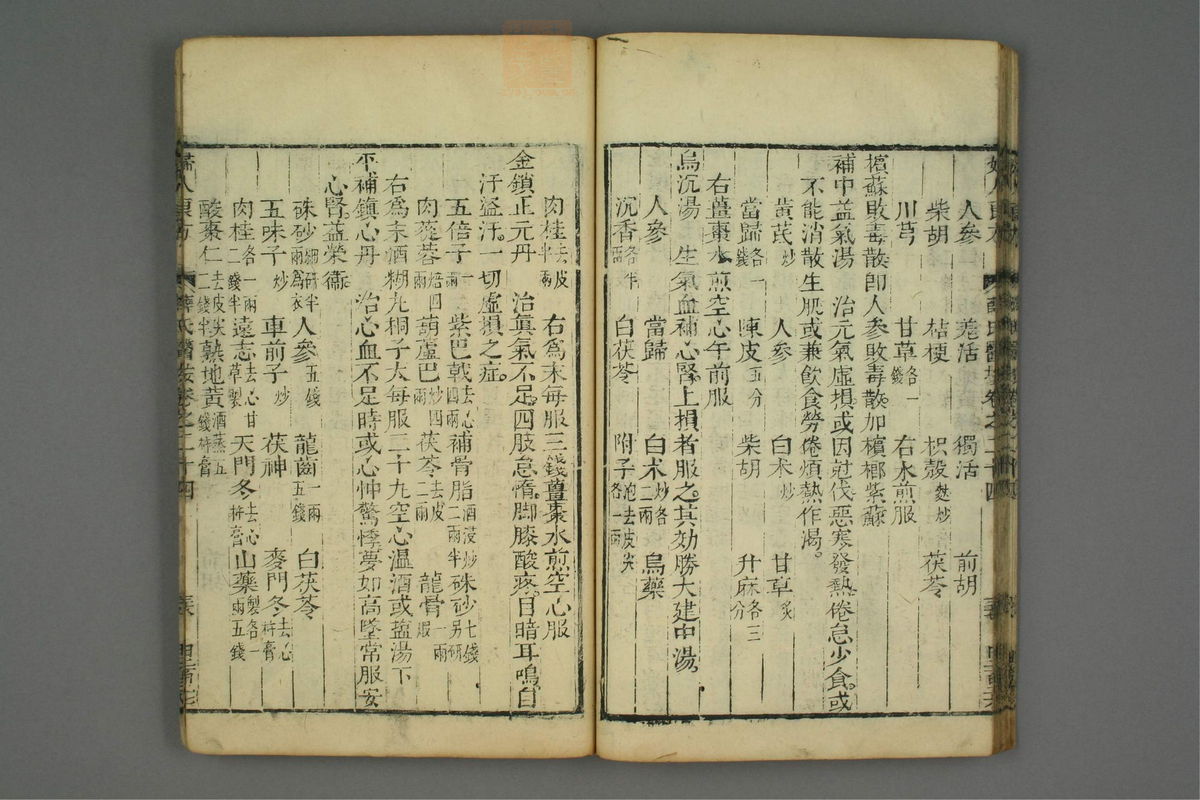 人參 羗活 獨活 前胡
柴胡 桔梗 枳殻麩炒 茯苓
川芎 甘草各一錢 右水煎服
檳蘇敗毒散即人參敗毒散加檳榔紫蘇
補中益氣湯 治元氣虛損或因尅伐惡寒發熱倦怠少食或
不能消散生肌或兼飲食勞倦煩熱作渴
黄芪炒 人參 白朮炒 甘草炙
當歸各一錢 陳皮五分 柴胡 升麻各三分
右薑棗水煎空心午前服
烏沉湯 生氣血補心腎上損者服之其効勝大建中湯
人參 當歸 白朮炒各二兩 烏藥
沉香各半兩 白茯苓 附子炮去皮尖各一兩
肉桂去皮半兩 右爲末每服三錢薑棗水煎空心服
金鎖正元丹 治眞氣不足四肢怠惰脚膝酸疼目暗耳鳴自
汗盗汗一切虛損之症
五倍子一兩 紫巴戟去心四兩 補骨脂酒浸炒二兩半 硃砂七錢另研
肉蓯蓉焙四兩 葫蘆巴炒四兩 茯苓去皮二兩 龍骨一兩煆
右爲末酒糊丸桐子大每服二十九空心溫酒或盐湯下
平補鎮心丹 治心血不足時或心忡驚悸夢如高墜常服安
心腎益榮衞
硃砂細研半兩爲衣 人參五錢 龍齒一兩五錢 白茯苓
五味子炒 車前子炒 茯神 麥門冬去心杵膏
肉桂各一兩二錢半 遠志去心甘草製 天門冬去心杵膏 山藥製各一兩五錢
酸棗仁去皮尖二錢半 熟地黄酒蒸五錢杵膏
薛氏醫按卷之二十四